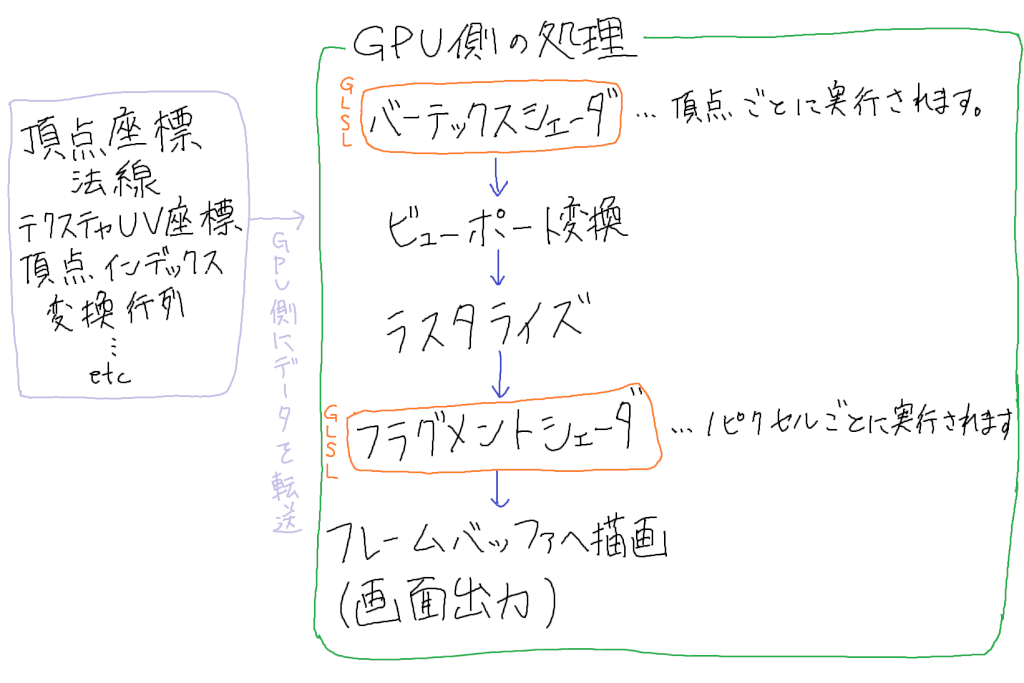 頂点座標
法線
テクスチャUV座標
頂点インデックス
変換行列
⋮
etc
GPU側にデータを転送
GPU側の処理
GLSL
バーテックスシェーダ
…頂点ごとに実行されます。
ビューポート変換
ラスタライズ
GLSL
フラグメントシェーダ
…1ピクセルごとに実行されます
フレームバッファへ描画
(画面出力)